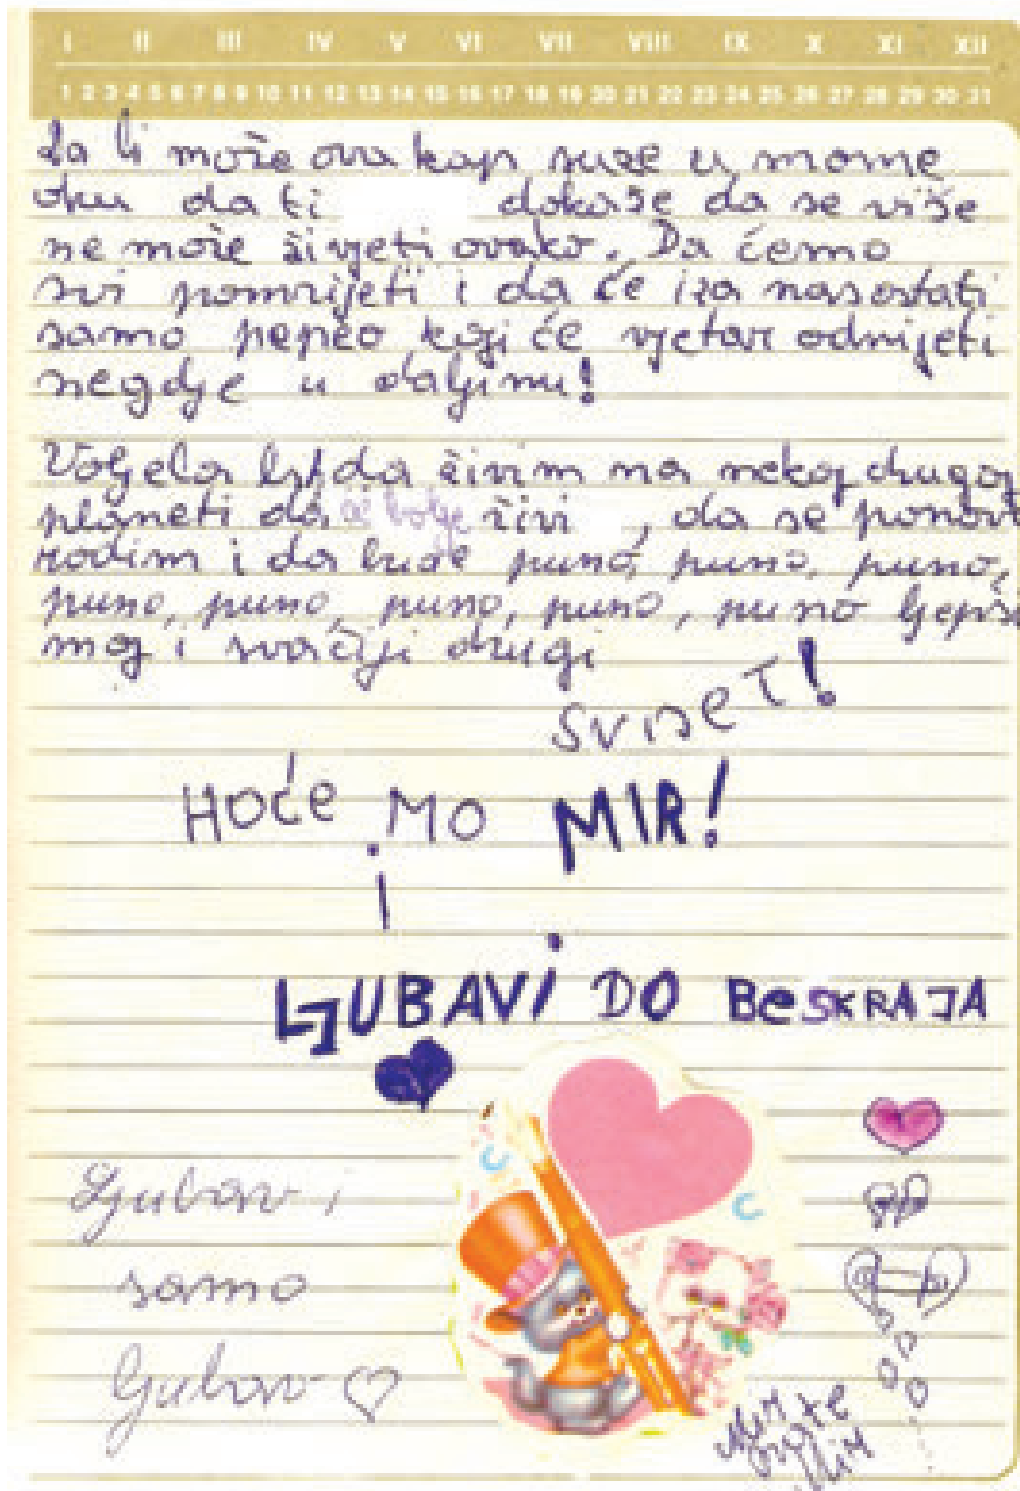 I II III IV V VI VII VIII IX X XI XII
1 2 3 4 5 6 7 8 9 10 11 12 13 14 15 16 17 18 19 20 21 22 23 24 25 26 27 28 29 30 31
Da li može ova kap suze u mome
oku da ti dokaže da se više
ne može živjeti ovako. Da ćemo
svi pomrijeti i da će iza nas ostati
samo pepeo koji će vjetar odnijeti
negdje u daljinu!
Voljela bih da živim na nekoj drugoj
planeti da se bolje živi, da se ponovo
rodim i da bude puno, puno, puno,
puno, puno, puno, puno, puno ljepši
moj i svačiji drugi
SVIJET!
HOĆE MO MIR!
i
LJUBAVI DO BeSKRAJA
Ljubav i
samo
ljubav
Mir
Mir